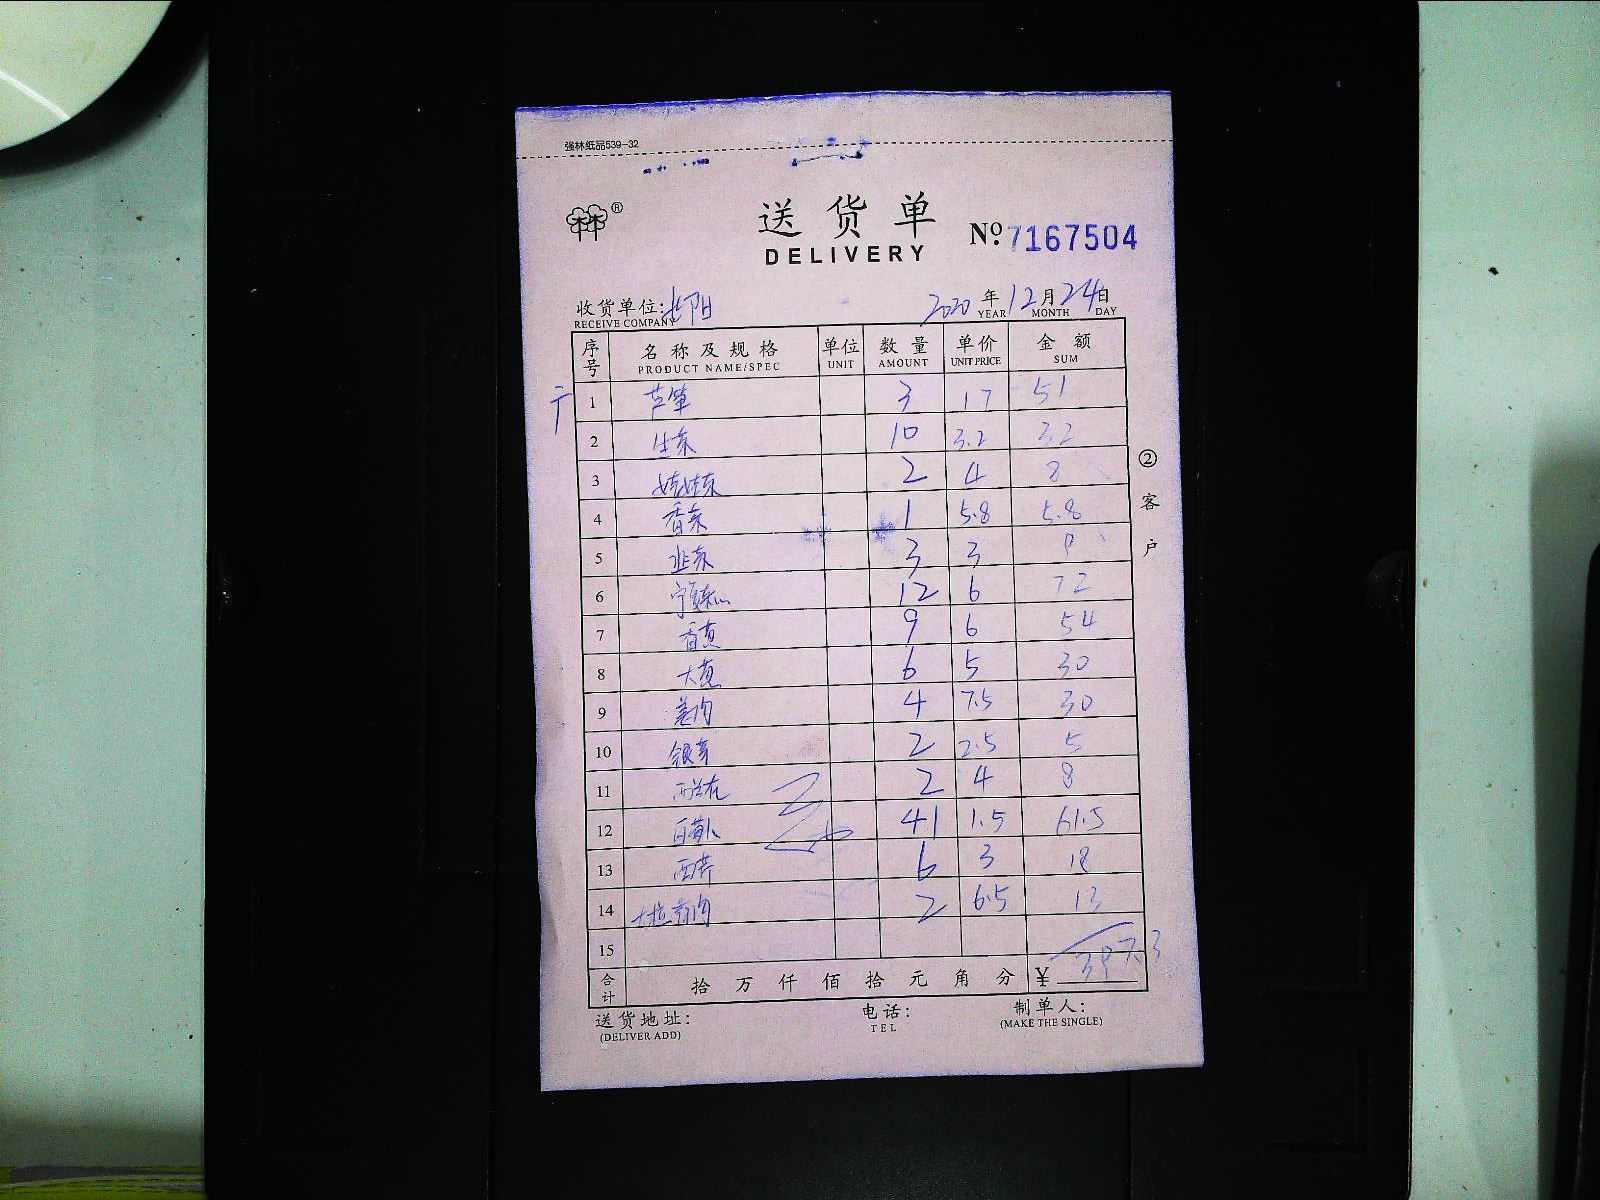 强林纸品539-32
®
送货单
DELIVERY
No. 7167504
收货单位:
RECEIVE COMPANY
2020年12月24日
YEAR MONTH DAY
序号 名称及规格 单位 数量 单价 金额
PRODUCT NAME/SPEC UNIT AMOUNT UNIT PRICE SUM
1 芦笋 3 17 51
2 生菜 10 3.2 32
3 娃娃菜 2 4 8
4 香菜 1 5.8 5.8
5 韭菜 3 3 9
6 12 6 72
7 香葱 9 6 54
8 大葱 6 5 30
9 姜肉 4 7.5 30
10 银芽 2 2.5 5
11 西兰花 2 4 8
12 白萝卜 41 1.5 61.5
13 西芹 6 3 18
14 2 6.5 13
15
合计 拾 万 仟 佰 拾 元 角 分 ¥ 397.3
送货地址: 电话: 制单人:
(DELIVER ADD) TEL (MAKE THE SINGLE)
② 客户